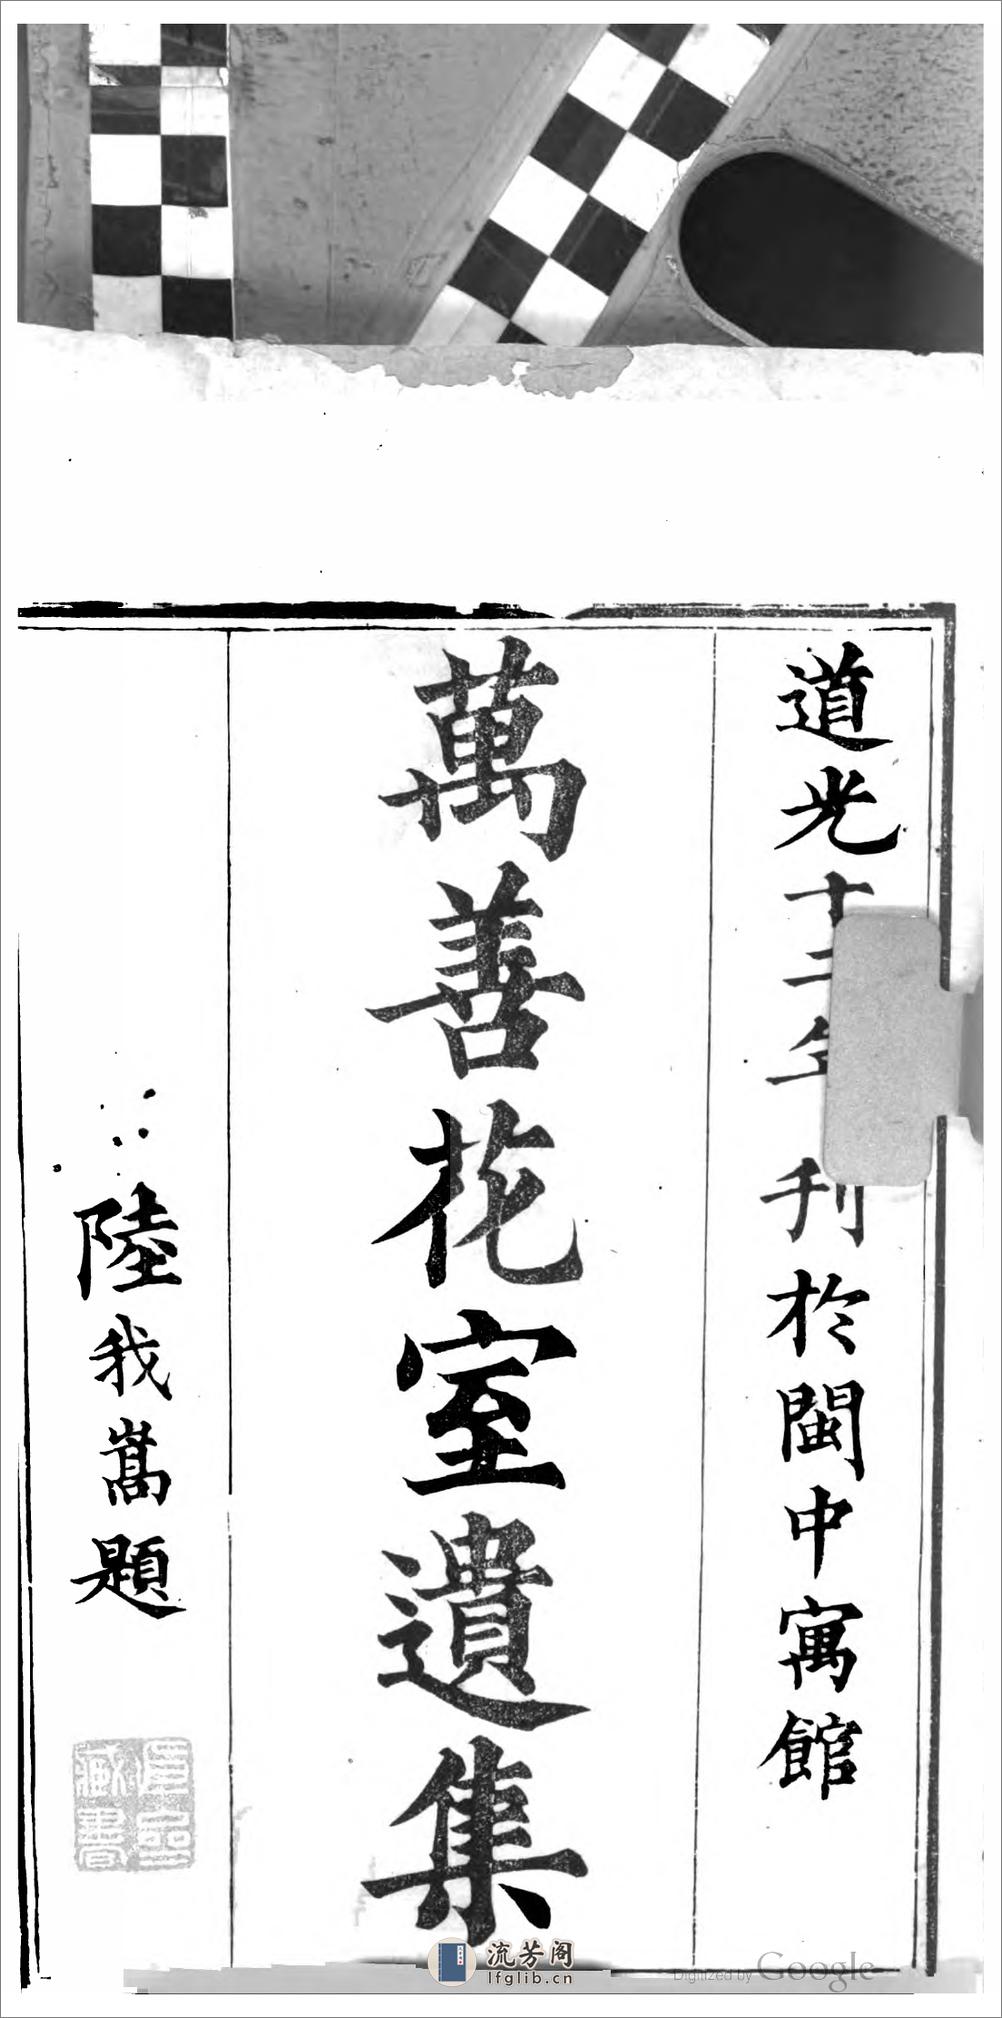 道光十二年刊於閩中寓館
萬善花室遺集
陸我嵩題
藏書
流芳阁
lfglib.cn
Digitized by Google